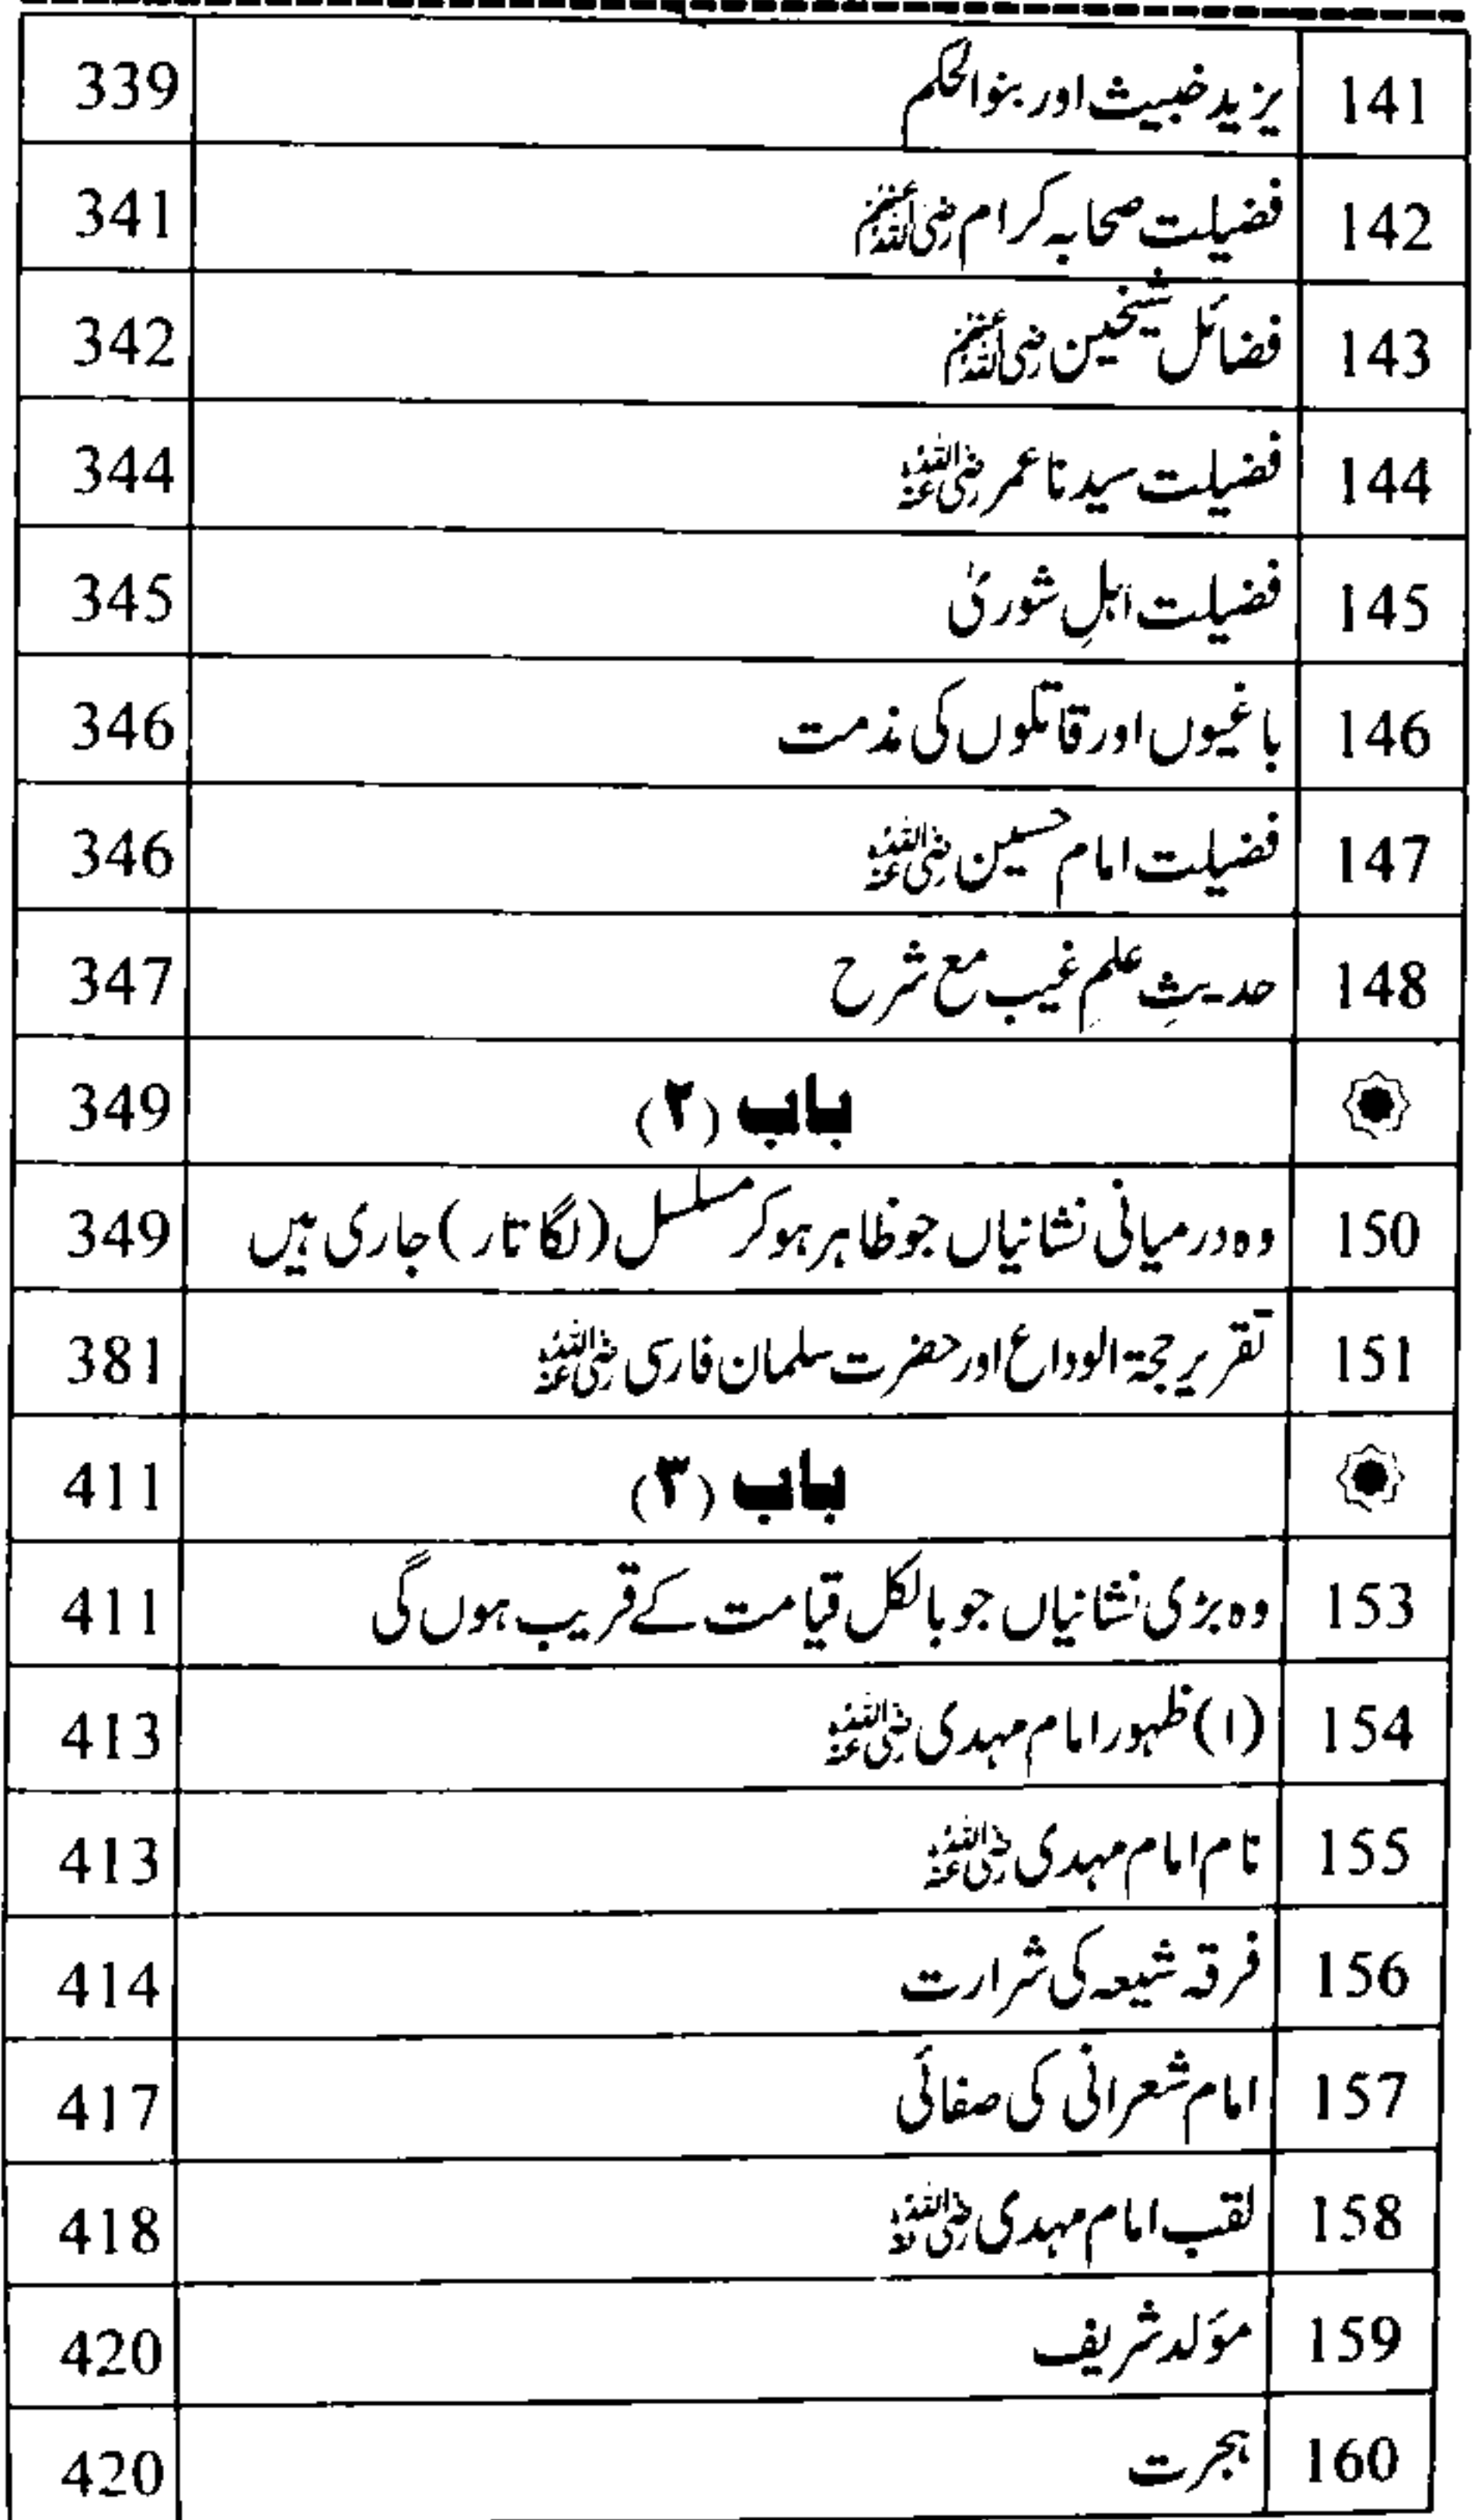 141 یزید خبیث اور بنو الحکم 339
142 فضیلت صحابہ کرام رضی اللہ عنہم 341
143 فضائل شیخین رضی اللہ عنہم 342
144 فضیلت سیدنا عمر رضی اللہ عنہ 344
145 فضیلت اہلِ شوریٰ 345
146 باغیوں اور قاتلوں کی مذمت 346
147 فضیلت امام حسین رضی اللہ عنہ 346
148 حدیثِ علمِ غیب مع شرح 347
باب (۲) 349
150 وہ درمیانی نشانیاں جو ظاہر ہو کر مسلسل (لگا تار) جاری ہیں 349
151 تقریر حجۃ الوداع اور حضرت سلمان فارسی رضی اللہ عنہ 381
باب (۳) 411
153 وہ بڑی نشانیاں جو بالکل قیامت کے قریب ہوں گی 411
154 (۱) ظہور امام مہدی رضی اللہ عنہ 413
155 نام امام مہدی رضی اللہ عنہ 413
156 فرقہ شیعہ کی شرارت 414
157 امام شعرانی کی صفائی 417
158 لقب امام مہدی رضی اللہ عنہ 418
159 مؤلد شریف 420
160 ہجرت 420